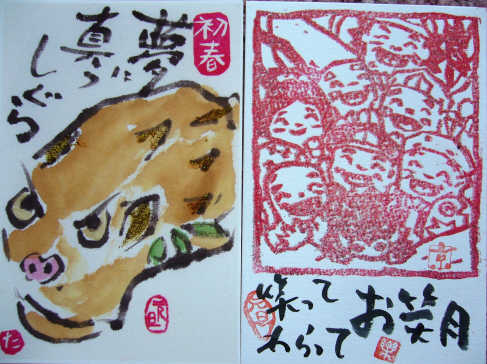 初春
夢に
真っ
しぐら
た
お笑月
笑って
わらって
楽